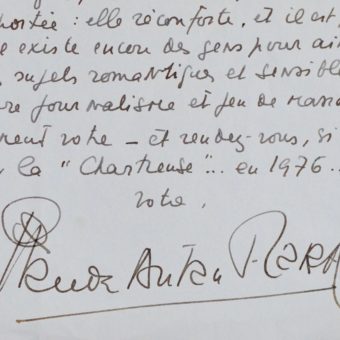 portée : elle réconforte, et il est
e existe encore des gens pour aim
sujets romantiques et sensible
re journalisme et jeu de massa
ment votre – et rendez-vous, si
la "Chartreuse"... en 1976...
votre,
Claude Autant-Lara